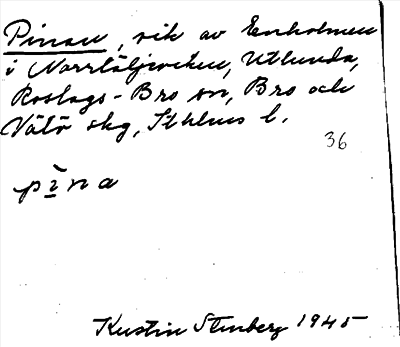 Pinan, vik av Enholmen
i Norrtäljeviken, Utlunda,
Roslags-Bro sn, Bro och
Vätö skg, Sthlms l.
36
pina
Kustin Stenberg 1945